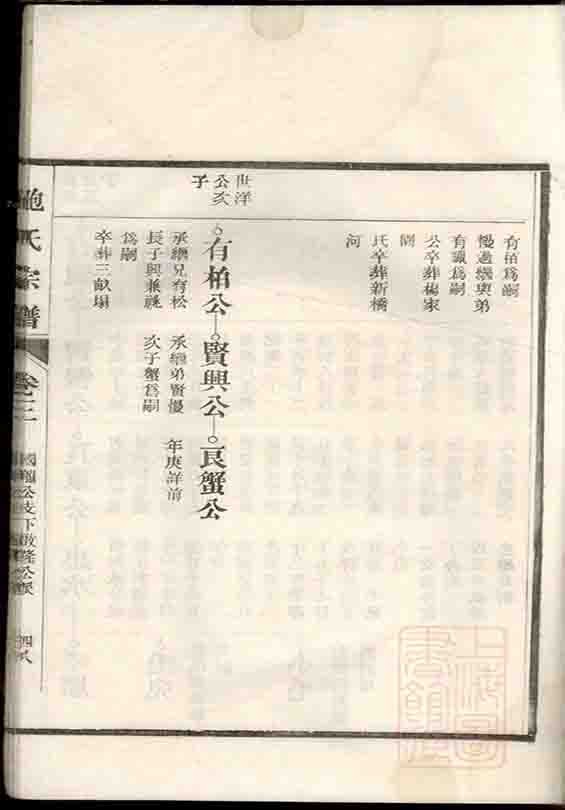 有柏爲嗣
慢過繼與弟
有議爲嗣
公卒葬楊家
氏卒葬新橋
河
世洋
公次
子
有柏公
承繼兄有松
長子興兼祧
爲嗣
卒葬三畝塌
賢興公
承繼弟賢慢
次子蟹爲嗣
艮蟹公
年庚詳前
鮑氏宗譜
卷三
國 公支下啟隆公派
四八
上海圖
書館藏